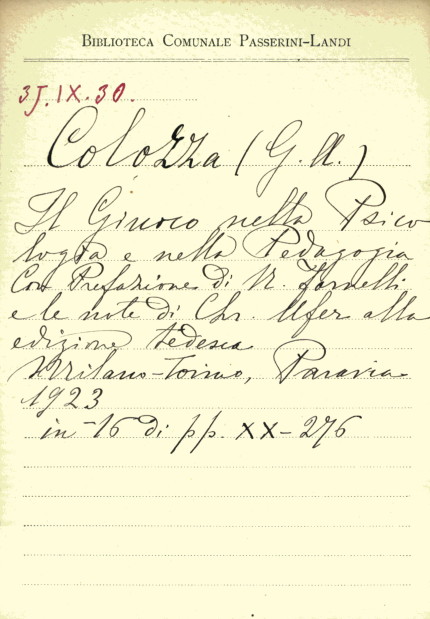 BIBLIOTECA COMUNALE PASSERINI-LANDI
3J.IX.30.
Colozza (G. A.)
Il Giuoco nella Psico
logia e nella Pedagogia
Con Prefazione di N. Fornelli
e le note di Chr. Ufer alla
edizione tedesca
Milano-Torino, Paravia
1923
in-16 di pp. XX-276